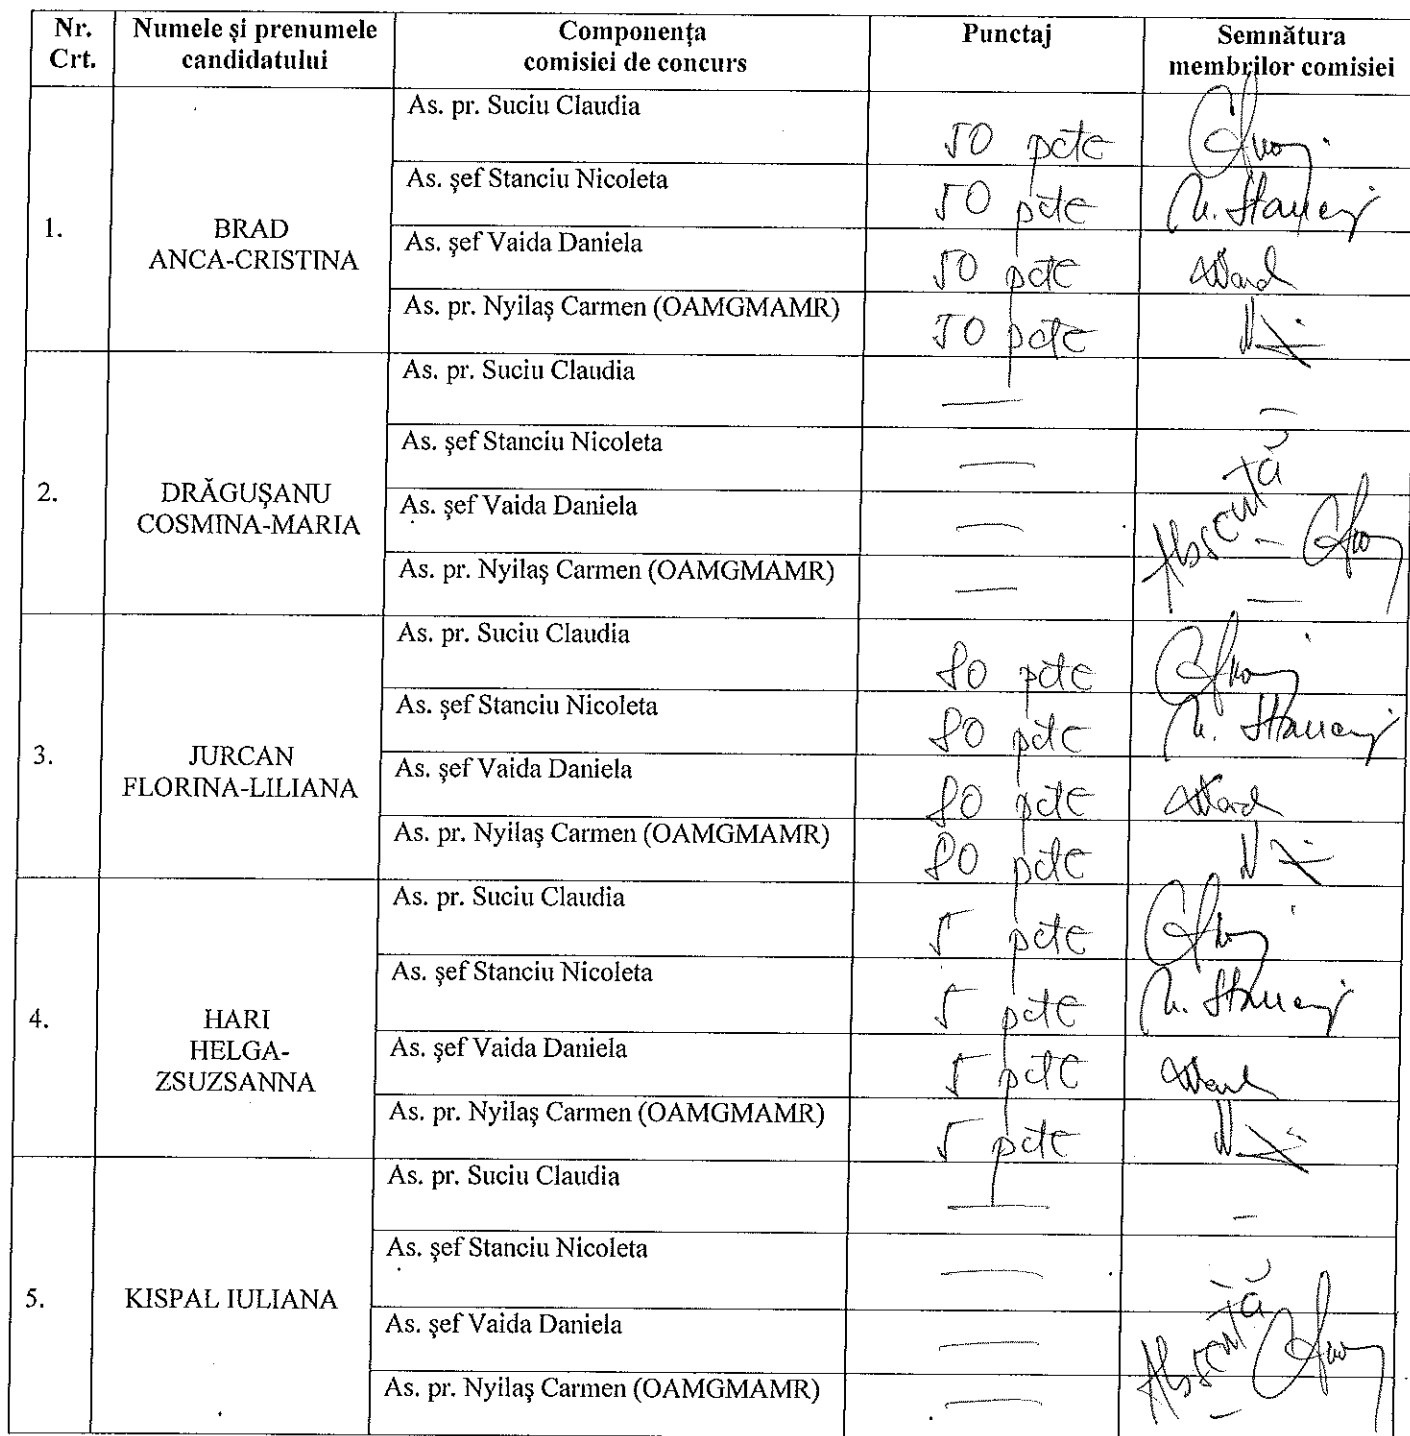 Nr. Crt. Numele și prenumele candidatului Componența comisiei de concurs Punctaj Semnătura membrilor comisiei
1. BRAD ANCA-CRISTINA
As. pr. Suciu Claudia 50 pcte
As. șef Stanciu Nicoleta 50 pcte
As. șef Vaida Daniela 50 pcte
As. pr. Nyilaș Carmen (OAMGMAMR) 50 pcte
2. DRĂGUȘANU COSMINA-MARIA
As. pr. Suciu Claudia —
As. șef Stanciu Nicoleta —
As. șef Vaida Daniela —
As. pr. Nyilaș Carmen (OAMGMAMR) —
Absentă
3. JURCAN FLORINA-LILIANA
As. pr. Suciu Claudia 80 pcte
As. șef Stanciu Nicoleta 80 pcte
As. șef Vaida Daniela 80 pcte
As. pr. Nyilaș Carmen (OAMGMAMR) 80 pcte
4. HARI HELGA-ZSUZSANNA
As. pr. Suciu Claudia 5 pcte
As. șef Stanciu Nicoleta 5 pcte
As. șef Vaida Daniela 5 pcte
As. pr. Nyilaș Carmen (OAMGMAMR) 5 pcte
5. KISPAL IULIANA
As. pr. Suciu Claudia —
As. șef Stanciu Nicoleta —
As. șef Vaida Daniela —
As. pr. Nyilaș Carmen (OAMGMAMR) —
Absentă